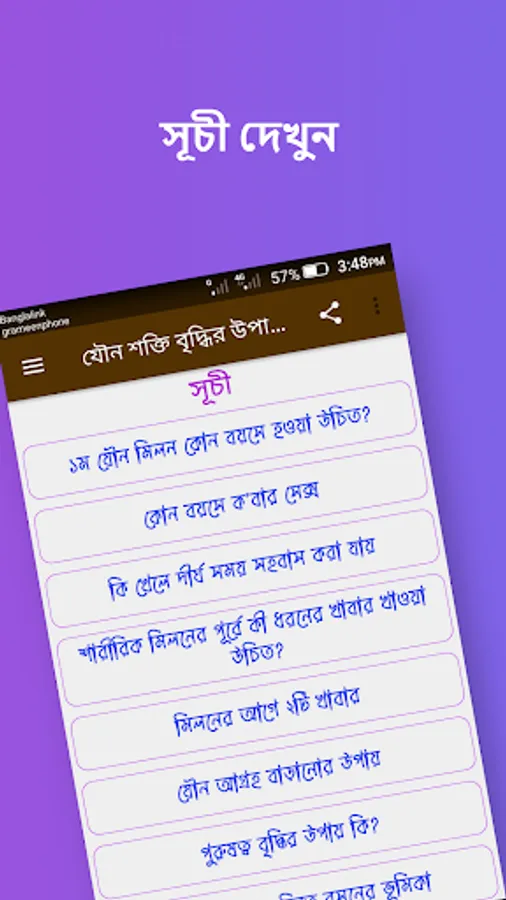 সূচী দেখুন
Banglalink
grameenphone
4G 57% 3:48PM
যৌন শক্তি বৃদ্ধির উপা...
সূচী
১ম যৌন মিলন কোন বয়সে হওয়া উচিত?
কোন বয়সে ক'বার সেক্স
কি খেলে দীর্ঘ সময় সহবাস করা যায়
শারীরিক মিলনের পূর্বে কী ধরনের খাবার খাওয়া
উচিত?
মিলনের আগে ২টি খাবার
যৌন আগ্রহ বাড়ানোর উপায়
পুরুষত্ব বৃদ্ধির উপায় কি?
রসুনের ভূমিকা